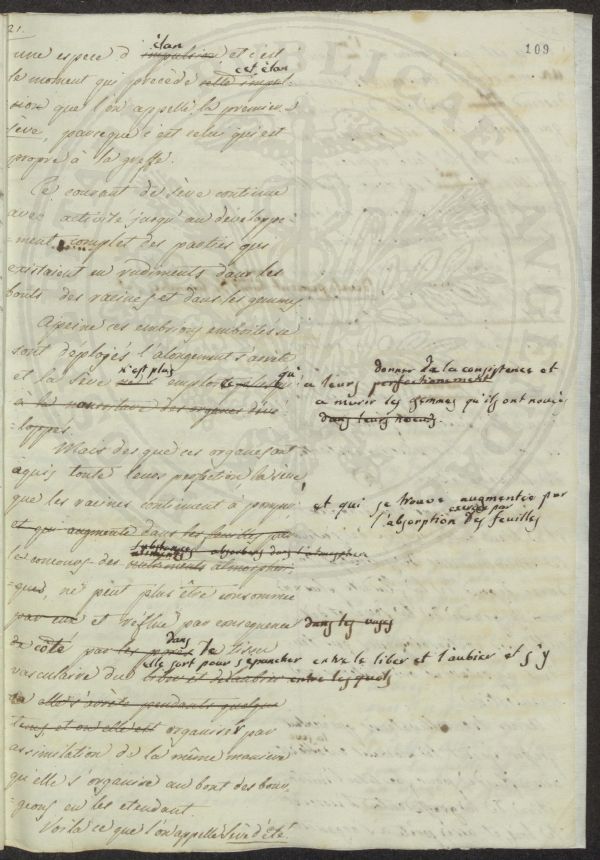 21.
109
une espece d' élan impulsion et c'est
le moment qui précède cet élan cette impul
sion que l'on appelle la premiere
seve, parceque c'est celui qui est
propre à la greffe.
Ce courant de sève continue
avec activité jusqu'au developpe-
-ment complet des parties qui
existaient en rudiments dans les
bouts des racines et dans les gemmes
Apeine ces embrions emboités se
sont déployés l'alongement s'arrete
et la seve n'est plus employée qui a leurs donner de la consistence et perfectionnement
a murir les gemmes qu'ils ont nouris
dans leurs noeuds.
à la nourriture des organes déve
-loppés.
Mais des que ces organes ont
aquis toute leurs perfection la seve
que les racines continuent à pomper et qui se trouve augmentée par
l'absorption exercée par des feuilles
et qui augmente dans les feuilles par
le concours des substances alimens absorbées dans l'atmosphere
-ques, ne peut plus être consommée
par eux et réflue par consequence dans les vuges
de côté par les dans le tissu
vasculaire du elle sort pour s'epancher entre le liber et l'aubier et s'y
liber et de l'aubier entre lesquels
elle s'arrête pendant quelque
tems et ou elle est organiser par
assimilation de la même maniere
qu'elle s'organise au bout des bour-
-geons en les etendant.
Voila ce que l'on appelle Sève d'été